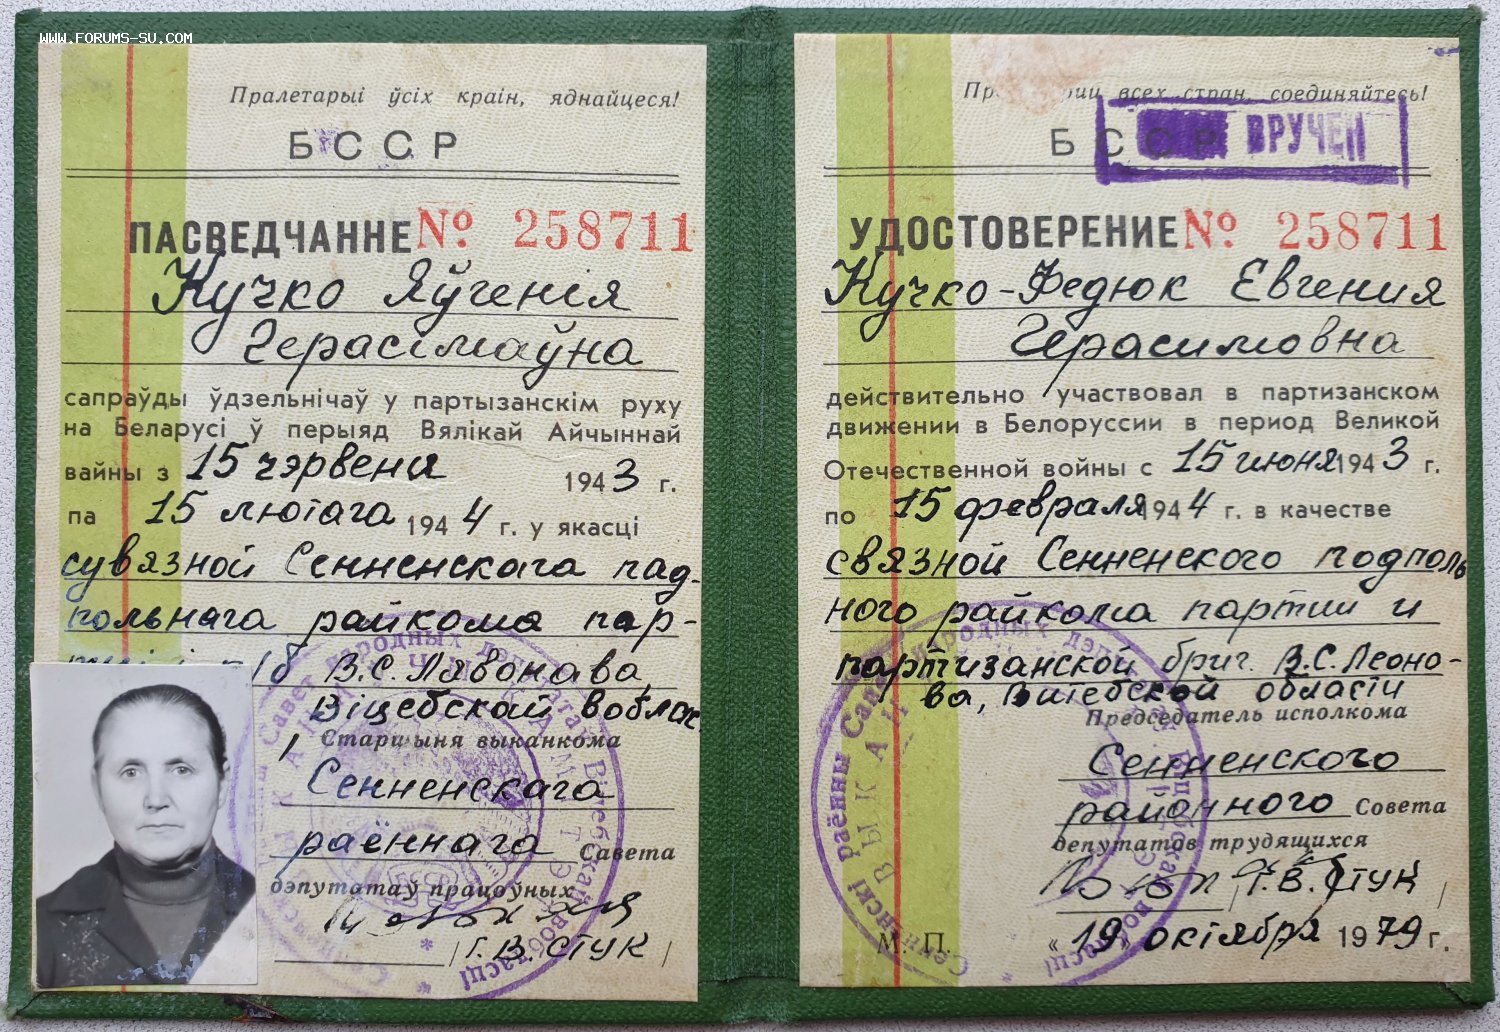 WWW.FORUMS-SU.COM
Пралетарыі ўсіх краін, яднайцеся!
БССР
ПАСВЕДЧАННЕ № 258711
Кучко Яўгенія
Герасімаўна
сапраўды ўдзельнічаў у партызанскім руху
на Беларусі ў перыяд Вялікай Айчыннай
вайны з 15 чэрвеня 1943 г.
па 15 лютага 1944 г. у якасці
сувязной Сенненскага пад-
польнага райкома пар-
п/б В.С. Лявонава,
Віцебскай воблас
Старшыня выканкома
Сенненскага
раённага Савета
дэпутатаў працоўных
Г.В. СТУК
Пралетарии всех стран, соединяйтесь!
БССР
ВРУЧЕН
УДОСТОВЕРЕНИЕ № 258711
Кучко-Федюк Евгения
Герасимовна
действительно участвовал в партизанском
движении в Белоруссии в период Великой
Отечественной войны с 15 июня 1943 г.
по 15 февраля 1944 г. в качестве
связной Сенненского подполь
ного райкома партии и
партизанской бриг. В.С. Леоно-
ва, Витебской области
Председатель исполкома
Сенненского
районного Совета
депутатов трудящихся
Г.В. Стук
М. П.
«19» октября 1979 г.